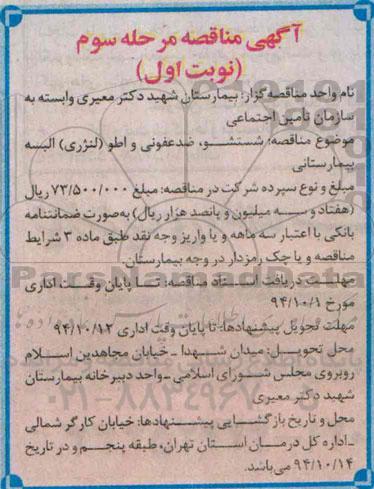 آگهی مناقصه مرحله سوم
(نوبت اول)
نام واحد مناقصه‌گزار: بیمارستان شهید دکتر معیری وابسته به
سازمان تأمین اجتماعی
موضوع مناقصه: شستشو، ضدعفونی و اطو (لنژری) البسه
بیمارستانی
مبلغ و نوع سپرده شرکت در مناقصه: مبلغ ۷۳/۵۰۰/۰۰۰ ریال
(هفتاد و سه میلیون و پانصد هزار ریال) به‌صورت ضمانتنامه
بانکی با اعتبار سه ماهه و یا واریز وجه نقد طبق ماده ۳ شرایط
مناقصه و یا چک رمزدار در وجه بیمارستان.
مهلت دریافت اسناد مناقصه: تا پایان وقت اداری
مورخ ۹۴/۱۰/۱
مهلت تحویل پیشنهادها: تا پایان وقت اداری ۹۴/۱۰/۱۲
محل تحویل: میدان شهدا ـ خیابان مجاهدین اسلام
روبروی مجلس شورای اسلامی ـ واحد دبیرخانه بیمارستان
شهید دکتر معیری
محل و تاریخ بازگشایی پیشنهادها: خیابان کارگر شمالی
ـ اداره کل درمان استان تهران، طبقه پنجم و در تاریخ
۹۴/۱۰/۱۴ می‌باشد.
ParsNamadData
۰۲۱-۸۸۳۴۹۶۷۰